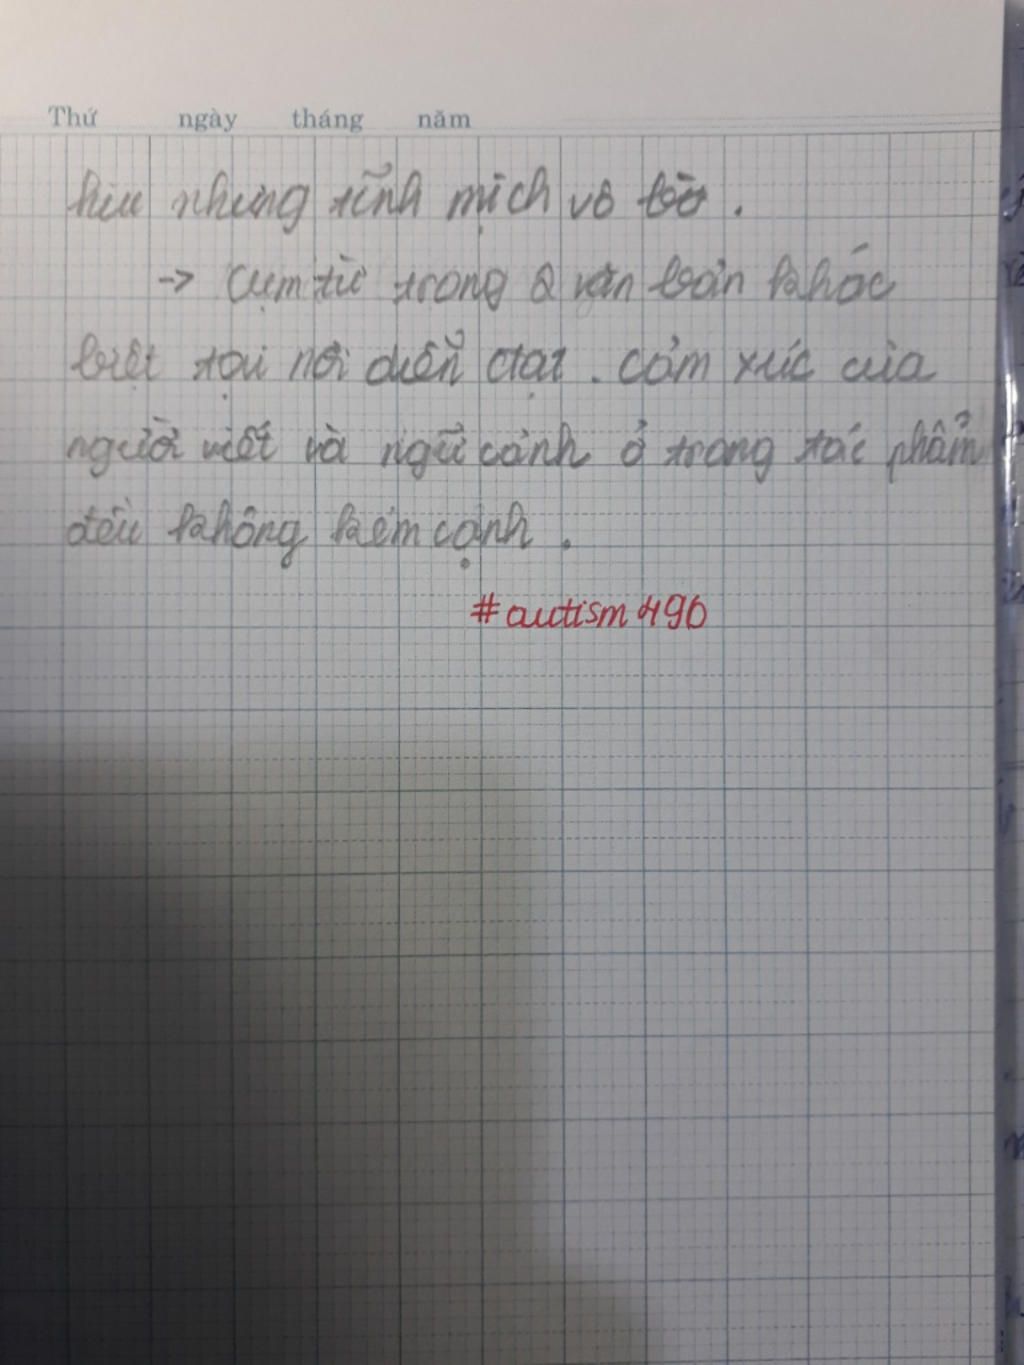 Thứ ngày tháng năm
hiu nhưng tĩnh mịch vô bờ.
-> Cụm từ trong 2 văn bản khác
biệt tại nơi diễn đạt. cảm xúc của
người viết và ngữ cảnh ở trong tác phẩm
đều không kém cạnh.
#autism496